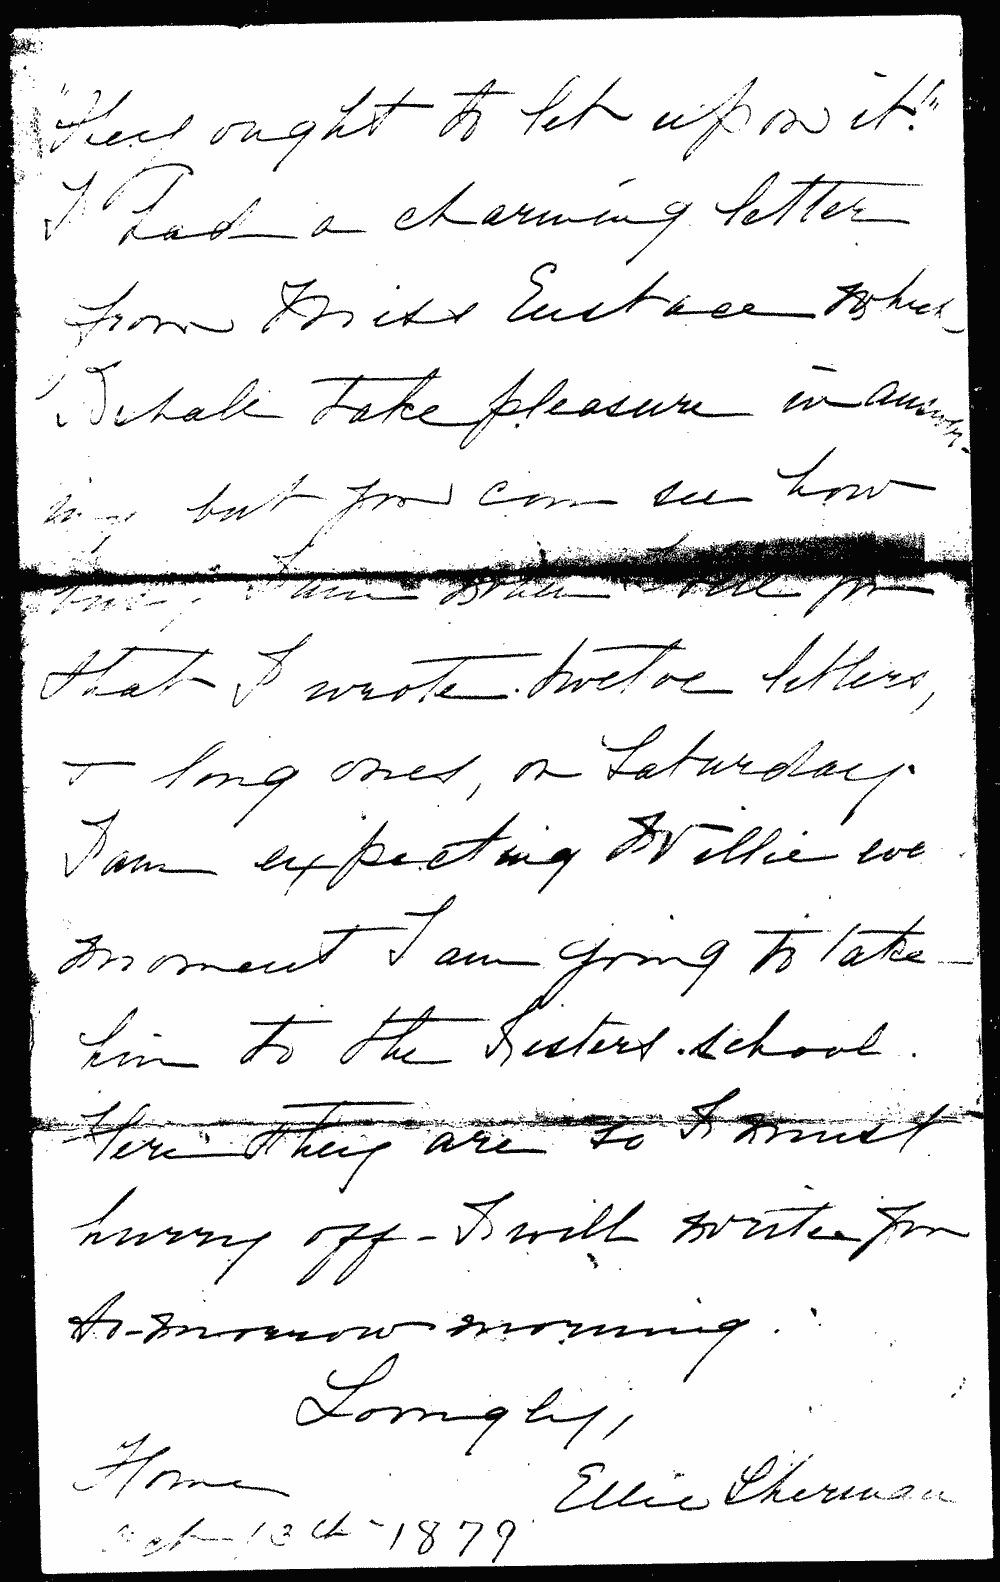 "They ought to let up on it!"
I had a charming letter
from Miss Eustace which
I shall take pleasure in answer-
ing but you can see how
busy I am when I tell you
that I wrote twelve letters,
& long ones, on Saturday.
I am expecting Willie eve
moment I am going to take
him to the Sisters school.
Here they are so I must
hurry off - I will write you
to-morrow morning.
Lovingly,
Home Ellie Sherman
Oct 13th 1879